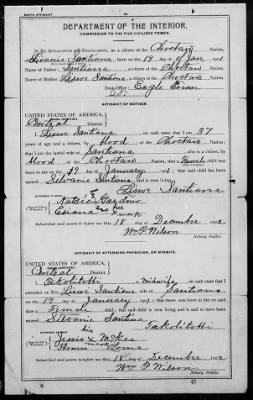 BIRTH AFFIDAVIT.
DEPARTMENT OF THE INTERIOR,
COMMISSION TO THE FIVE CIVILIZED TRIBES.
IN RE APPLICATION FOR ENROLLMENT, as a citizen of the Choctaw Nation,
of Silvanie Santiana, born on the 19 day of Jan,
Name of Father: Santiana a citizen of the Choctaw Nation.
Name of Mother: Liswe Santiana a citizen of the Choctaw Nation.
Post-Office: Eagle Town
AFFIDAVIT OF MOTHER.
UNITED STATES OF AMERICA,
Central District.
I, Liswe Santiana, on oath state that I am 37
years of age and a citizen, by blood of the Choctaw Nation;
that I am the lawful wife of Santiana, who is a citizen, by
blood of the Choctaw Nation; that a Female child was
born to me on 19 day of January, that said child has been
named Silvanie Santiana, and is now living.
Liswe Santiana
Gardner
mark
Subscribed and sworn to before me this 18 day of December, 1902
Wm P. Wilson
Notary Public.
AFFIDAVIT OF ATTENDING PHYSICIAN, OR MIDWIFE.
UNITED STATES OF AMERICA,
Central District.
I, Takolitotti, a midwife, on oath state that I
attended on Mrs. Liswe Santiana, wife of Santiana
on the 19 day of January, that there was born to her on said
date a Female child; that said child is now living and is said to have been
named Silvanie Santiana
Takolitotti
his
x McKee
Thomas
Subscribed and sworn to before me this 18 day of December, 1902
Wm P. Wilson
Notary Public.